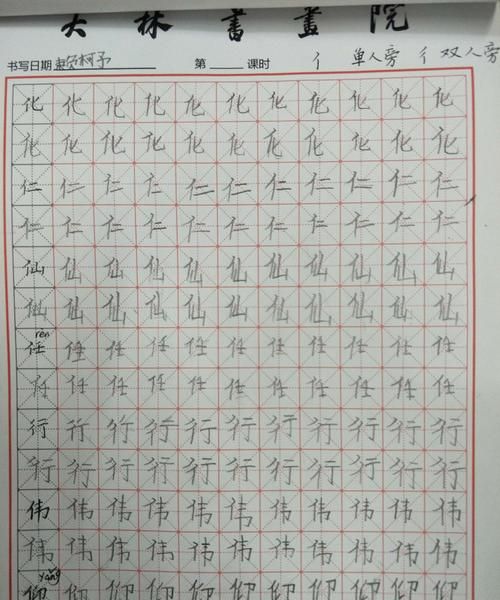 大林書畫院
书写日期 第 课时 亻 单人旁 彳 双人旁
化化化化化化化化化化化
化化化化化化化化化化化
仁仁仁仁仁仁仁仁仁仁仁
仁仁仁仁仁仁仁仁仁仁仁
仙仙仙仙仙仙仙仙仙仙仙
仙仙仙仙仙仙仙仙仙仙仙
rèn
任任任任任任任任任任任
任任任任任任任任任任任
行行行行行行行行行行行
行行行行行行行行行行行
伟伟伟伟伟伟伟伟伟伟伟
伟伟伟伟伟伟伟伟伟伟伟
yǎng
仰仰仰仰仰仰仰仰仰仰仰